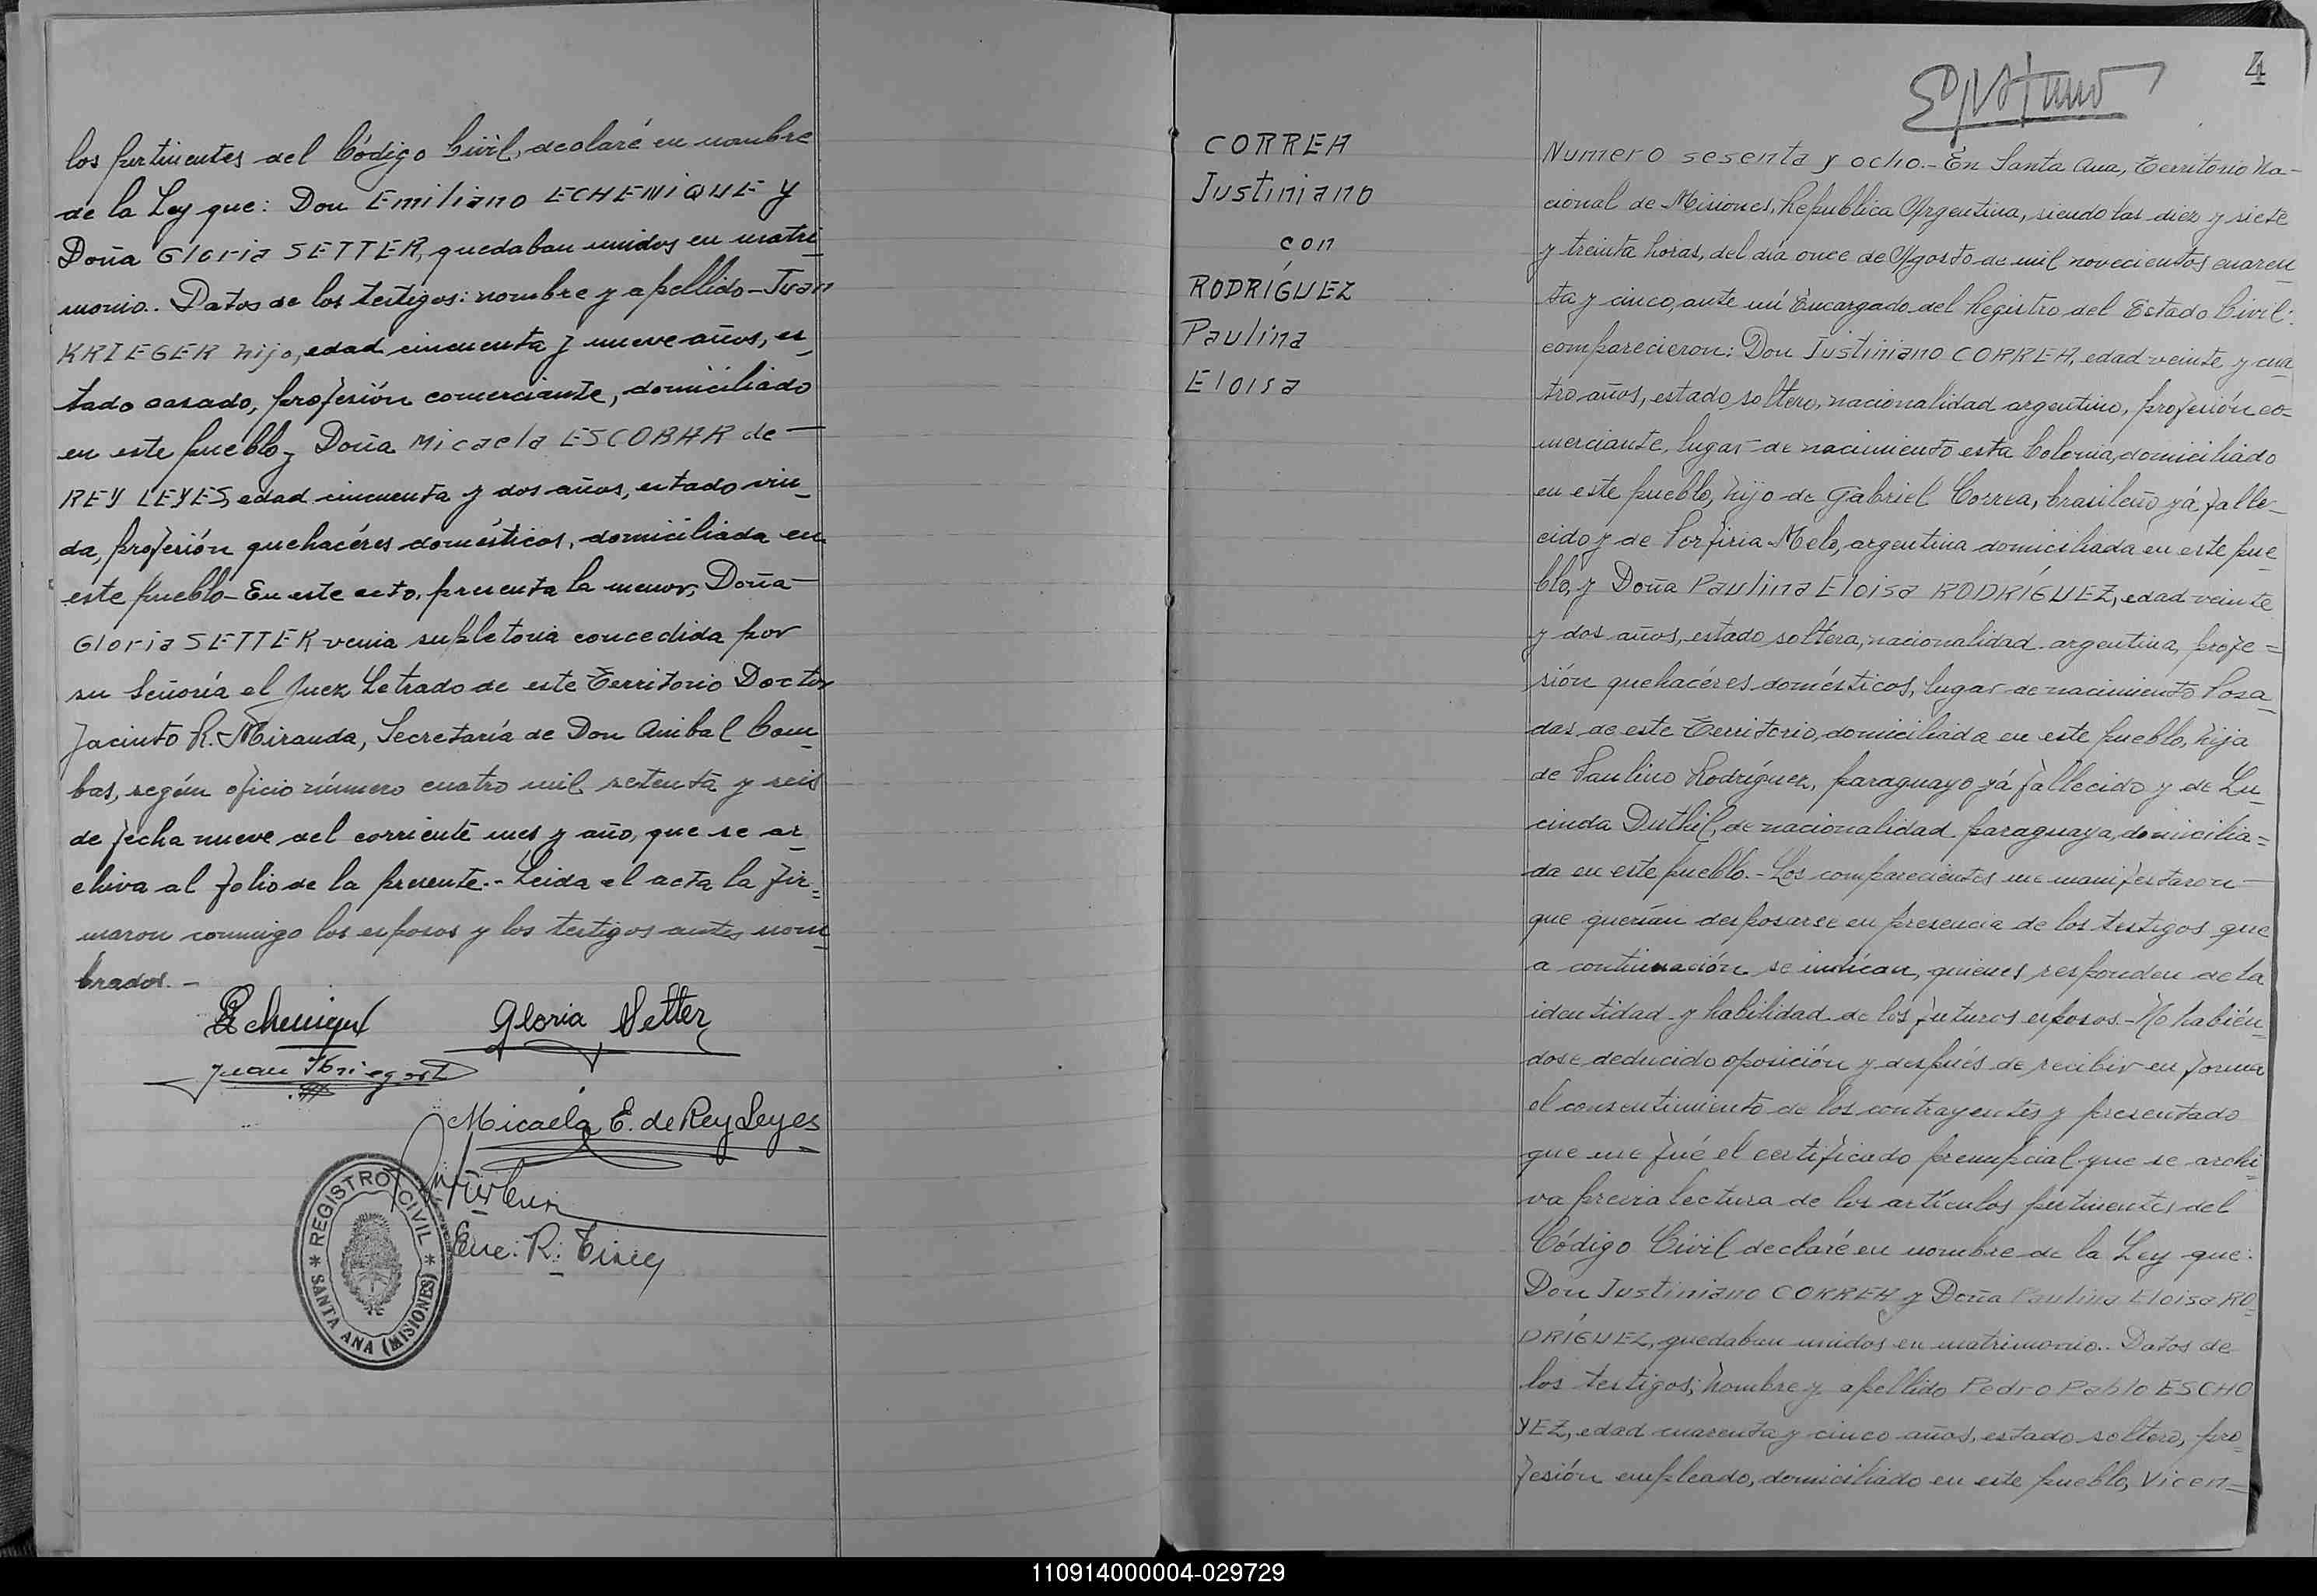 los pertinentes del Código Civil, declaré en nombre
de la Ley que: Don Emiliano ECHENIQUE y
Doña Gloria SETTER, quedaban unidos en matri_
monio.. Datos de los testigos: nombre y apellido - Juan
KRIEGER hijo, edad cincuenta y nueve años, es_
tado casado, profesión comerciante, domiciliado
en este pueblo y Doña Micaela ESCOBAR de —
REY LEYES, edad cincuenta y dos años, estado viu_
da, profesión quehacéres domésticos, domiciliada en
este pueblo - En este acto, presenta la menor, Doña —
Gloria SETTER venia supletoria concedida por
su Señoría el Juez Letrado de este Territorio Doctor
Jacinto R. Miranda, Secretaría de Don Anibal Com_
bas, según oficio número cuatro mil setenta y seis
de fecha nueve del corriente mes y año, que se ar_
chiva al folio de la presente.- Leida el acta la fir=
maron conmigo los esposos y los testigos antes nom_
brados. -
Echenique
Gloria Setter
Juan Krieger h
Micaela E. de Rey Leyes
Enc. R. Civil
* REGISTRO CIVIL *
SANTA ANA (MISIONES)
4
CORREA
Justiniano
con
RODRÍGUEZ
Paulina
Eloisa
Numero sesenta y ocho.- En Santa Ana, Territorio Na-
cional de Misiones, Republica Argentina, siendo las diez y siete
y treinta horas, del día once de Agosto de mil novecientos cuaren_
ta y cinco, ante mí Encargado del Registro del Estado Civil:
comparecieron: Don Justiniano CORREA, edad veinte y cua_
tro años, estado soltero, nacionalidad argentino, profesión co-
merciante, lugar de nacimiento esta Colonia, domiciliado
en este pueblo, hijo de Gabriel Correa, brasileño yá falle_
cido y de Porfiria Melo, argentina domiciliada en este pue_
blo, y Doña Paulina Eloisa RODRÍGUEZ, edad veinte
y dos años, estado soltera, nacionalidad argentina, profe=
sión quehacéres domésticos, lugar de nacimiento Posa_
das de este Territorio, domiciliada en este pueblo, hija
de Paulino Rodríguez, paraguayo yá fallecido y de Lu_
cinda Duthil, de nacionalidad paraguaya, domicilia=
da en este pueblo.- Los comparecientes me manifestaron —
que querían desposarse en presencia de los testigos que
a continuación se indican, quienes responden de la
identidad y habilidad de los futuros esposos.- No habién_
dose deducido oposición y después de recibir en forma
el consentimiento de los contrayentes y presentado
que me fué el certificado prenupcial que se archi_
va previa lectura de los artículos pertinentes del
Código Civil declaré en nombre de la Ley que:
Don Justiniano CORREA y Doña Paulina Eloisa RO_
DRÍGUEZ, quedaban unidos en matrimonio.. Datos de
los testigos; nombre y apellido Pedro Pablo ESCHO
YEZ, edad cuarenta y cinco años, estado soltero, pro_
fesión empleado, domiciliado en este pueblo, Vicen=
110914000004-029729